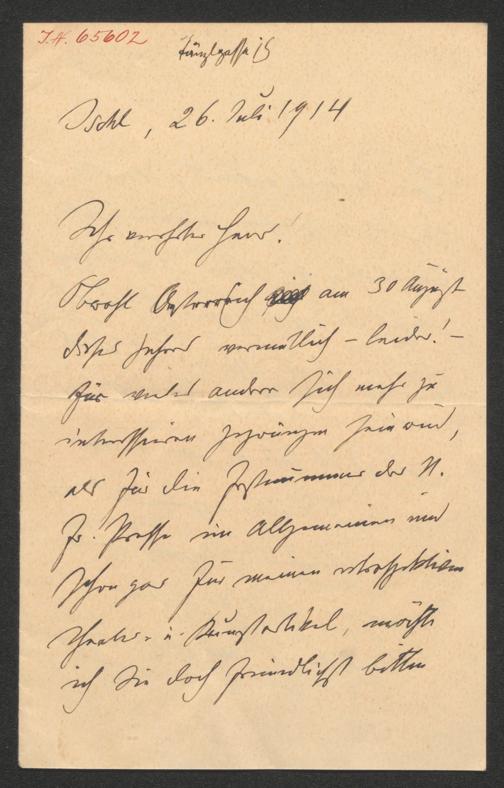 I.N. 65602
Tänzlgasse 15
Ischl, 26. Juli 1914
Sehr verehrter Herr.
Obwohl Oesterreich am 30 August
dieses Jahres vermutlich – leider! –
für vieles andere sich mehr zu
interessieren gezwungen sein wird,
als für die Festnummer der N.
Fr. Presse im Allgemeinen und
schon gar für meinen retrospektiven
Theater- u. Kunstartikel, möchte
ich Sie doch freundlichst bitten